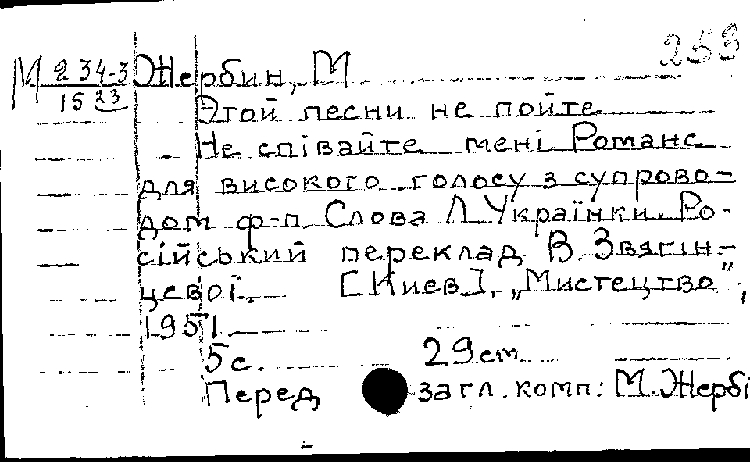 253
М 234-3 Жербин, М
15 23 Этой песни не пойте
Не співайте мені Романс
для високого голосу з супрово-
дом ф-п. Слова Л. Українки. Ро-
сійський переклад В. Звягін-
цевої. [Киев], „Мистецтво",
1951.
5 с. 29 см.
Перед загл. комп: М. Жербі